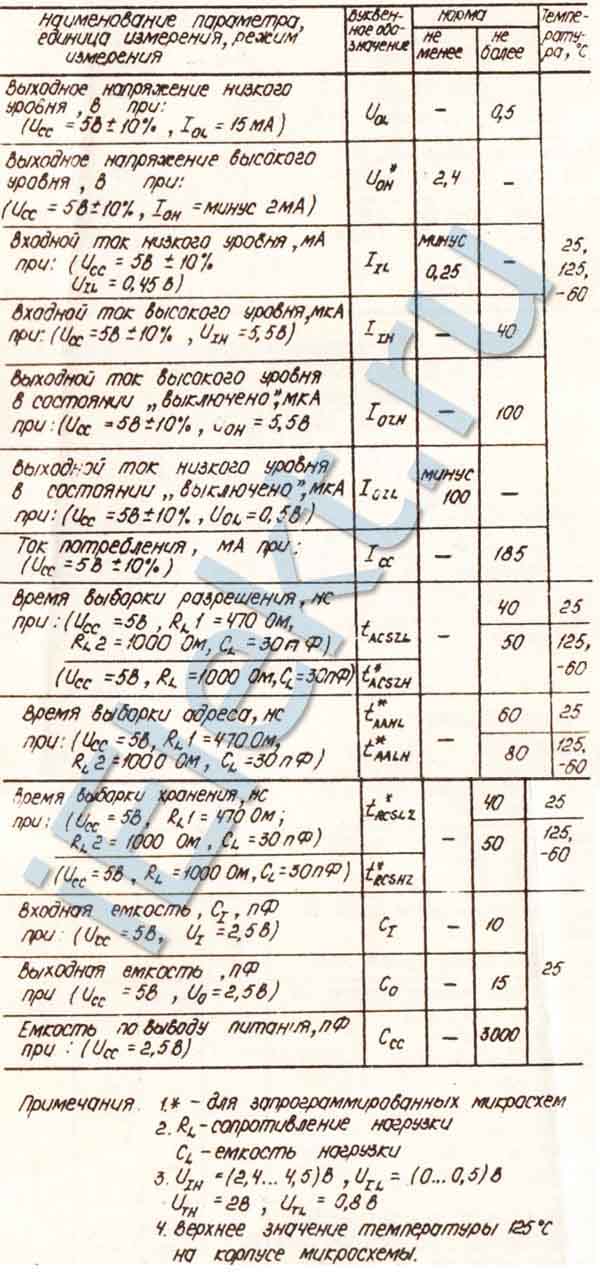 Наименование параметра, единица измерения, режим измерения
Буквенное обозначение
Норма
не менее
не более
Температура, °С
Выходное напряжение низкого
уровня, В при:
(Ucc = 5В ± 10%, IOL = 15 мА)
UOL
–
0,5
Выходное напряжение высокого
уровня, В при:
(Ucc = 5В ± 10%, IOH = минус 2мА)
UOH*
2,4
–
Входной ток низкого уровня, мА
при: (Ucc = 5В ± 10%
UIL = 0,45 В)
IIL
минус
0,25
–
25,
125,
-60
Входной ток высокого уровня, мкА
при: (Ucc = 5В ± 10%, UIH = 5,5В)
IIH
–
40
Выходной ток высокого уровня
в состоянии „выключено", мкА
при: (Ucc = 5В ± 10%, UOH = 5,5В
IOZH
–
100
Выходной ток низкого уровня
в состоянии „выключено", мкА
при: (Ucc = 5В ± 10%, UOL = 0,5В)
IOZL
минус
100
–
Ток потребления, мА при:
(Ucc = 5В ± 10%)
Icc
–
185
Время выборки разрешения, нс
при: (Ucc = 5В, RL1 = 470 Ом,
RL2 = 1000 Ом, CL = 30 пФ)
tACSZL
–
40
25
50
125,
-60
(Ucc = 5В, RL = 1000 Ом, CL = 30пФ)
tACSZH*
Время выборки адреса, нс
при: (Ucc = 5В, RL1 = 470 Ом,
RL2 = 1000 Ом, CL = 30 пФ)
tAAHL*
tAALH*
–
60
25
80
125,
-60
Время выборки хранения, нс
при: (Ucc = 5В, RL1 = 470 Ом;
RL2 = 1000 Ом, CL = 30 пФ)
tRCSLZ*
–
40
25
50
125,
-60
(Ucc = 5В, RL = 1000 Ом, CL = 30пФ)
tRCSHZ*
Входная емкость, CI, пФ
при: (Ucc = 5В, UI = 2,5В)
CI
–
10
Выходная емкость, пФ
при (Ucc = 5В, UO = 2,5В)
CO
–
15
25
Емкость по выводу питания, пФ
при: (Ucc = 2,5В)
Ccc
–
3000
Примечания. 1.* – для запрограммированных микросхем
2. RL – сопротивление нагрузки
CL – емкость нагрузки
3. UIH = (2,4... 4,5)В, UIL = (0... 0,5)В
UTH = 2В, UTL = 0,8 В
4. Верхнее значение температуры 125°С
на корпусе микросхемы.
iElekt.ru